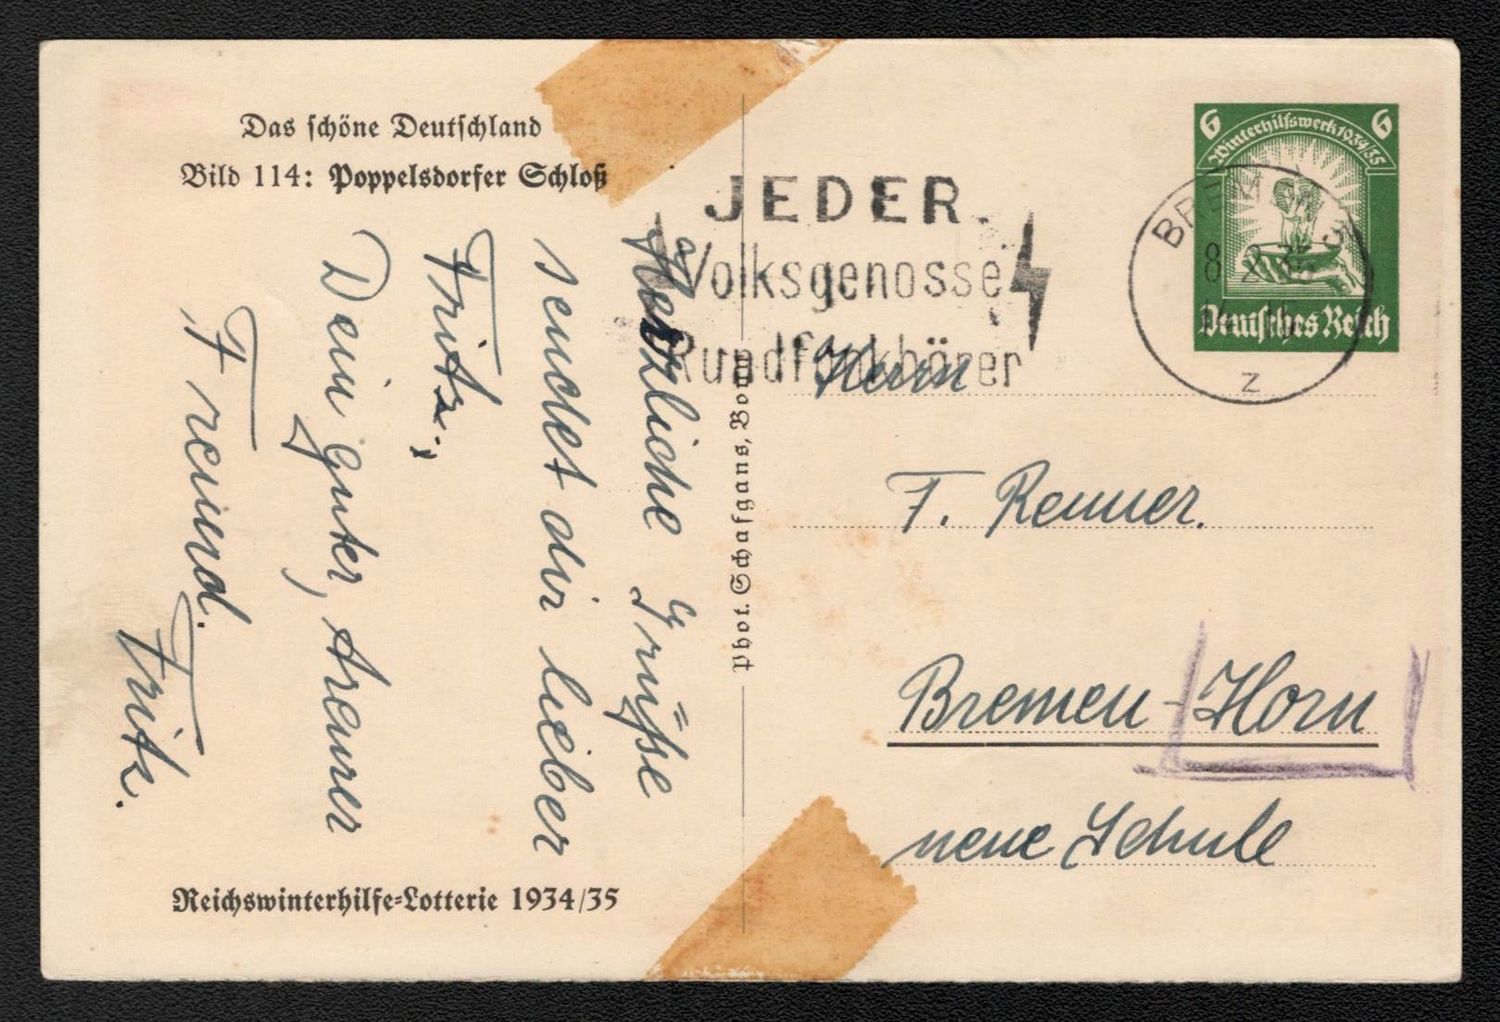 Das schöne Deutschland
Bild 114: Poppelsdorfer Schloß
Herzliche Grüße
sendet dir lieber
Fritz,
Dein guter, 
Freund.
Fritz.
Reichswinterhilfe-Lotterie 1934/35
Phot. Schafgans, Bonn
JEDER
Volksgenosse
Rundfunkhörer
6 Winterhilfswerk 1934/35 6
Deutsches Reich
8
Z
Herrn
F. Renner.
Bremen-Horn
neue Schule